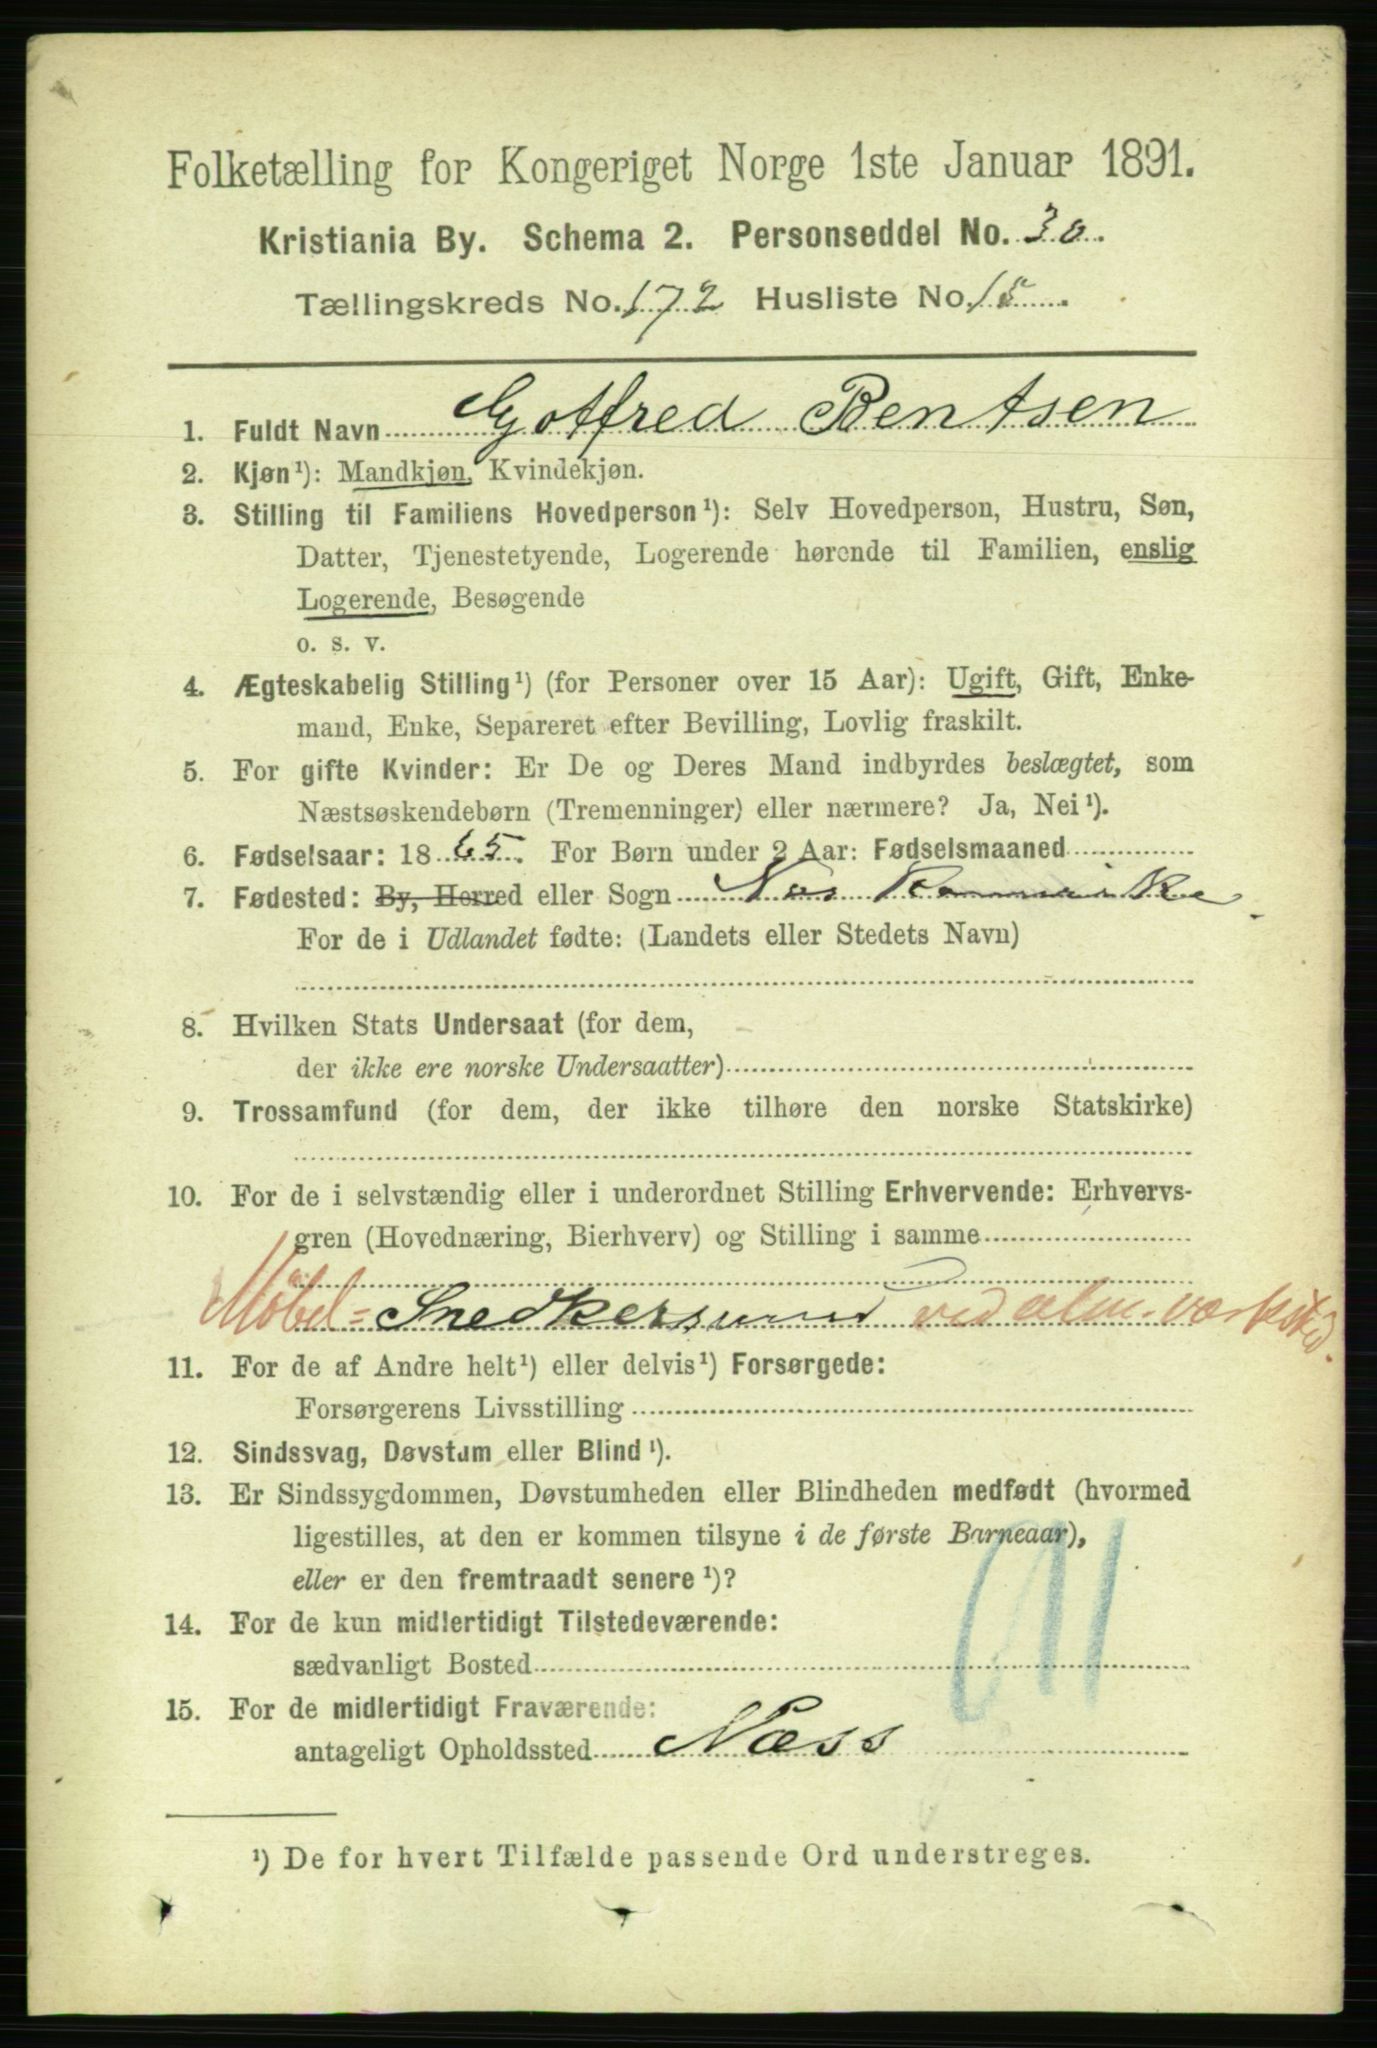 Folketælling for Kongeriget Norge 1ste Januar 1891.
Kristiania By. Schema 2. Personseddel No. 30.
Tællingskreds No. 172 Husliste No. 15.
1. Fuldt Navn Gotfred Bentsen
2. Kjøn¹): Mandkjøn, Kvindekjøn.
3. Stilling til Familiens Hovedperson¹): Selv Hovedperson, Hustru, Søn,
Datter, Tjenestetyende, Logerende hørende til Familien, enslig
Logerende, Besøgende
o. s. v.
4. Ægteskabelig Stilling¹) (for Personer over 15 Aar): Ugift, Gift, Enke-
mand, Enke, Separeret efter Bevilling, Lovlig fraskilt.
5. For gifte Kvinder: Er De og Deres Mand indbyrdes beslægtet, som
Næstsøskendebørn (Tremenninger) eller nærmere? Ja, Nei¹).
6. Fødselsaar: 1865. For Børn under 2 Aar: Fødselsmaaned
7. Fødested: By, Herred eller Sogn Næs
For de i Udlandet fødte: (Landets eller Stedets Navn)
8. Hvilken Stats Undersaat (for dem,
der ikke ere norske Undersaatter)
9. Trossamfund (for dem, der ikke tilhøre den norske Statskirke)
10. For de i selvstændig eller i underordnet Stilling Erhvervende: Erhvervs-
gren (Hovednæring, Bierhverv) og Stilling i samme
Møbel= Snedkersvend ved alm. værksted.
11. For de af Andre helt¹) eller delvis¹) Forsørgede:
Forsørgerens Livsstilling
12. Sindssvag, Døvstum eller Blind¹).
13. Er Sindssygdommen, Døvstumheden eller Blindheden medfødt (hvormed
ligestilles, at den er kommen tilsyne i de første Barneaar),
eller er den fremtraadt senere¹)?
14. For de kun midlertidigt Tilstedeværende:
sædvanligt Bosted
15. For de midlertidigt Fraværende:
antageligt Opholdssted Næss
¹) De for hvert Tilfælde passende Ord understreges.